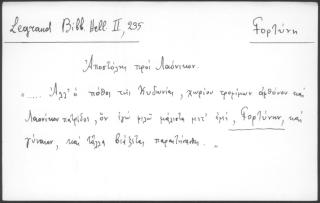 Legrand Bibl. Hell. II, 235
Γορτύνη
Ἀποστόλης πρὸς Λαόνικον.
"..... Ἀλλ' ὁ πόθος τῆς Κυδωνίας, χωρίου τροφίμων ἀφθόνου καὶ
Λαονίκου πατρίδος, ὃν ἐγὼ φιλῶ μάλιστα μετ' ἐμὲ, Γορτύνην, καὶ
γύναιον, καὶ τἆλλα βιάζεται παραιτήσασθαι. "